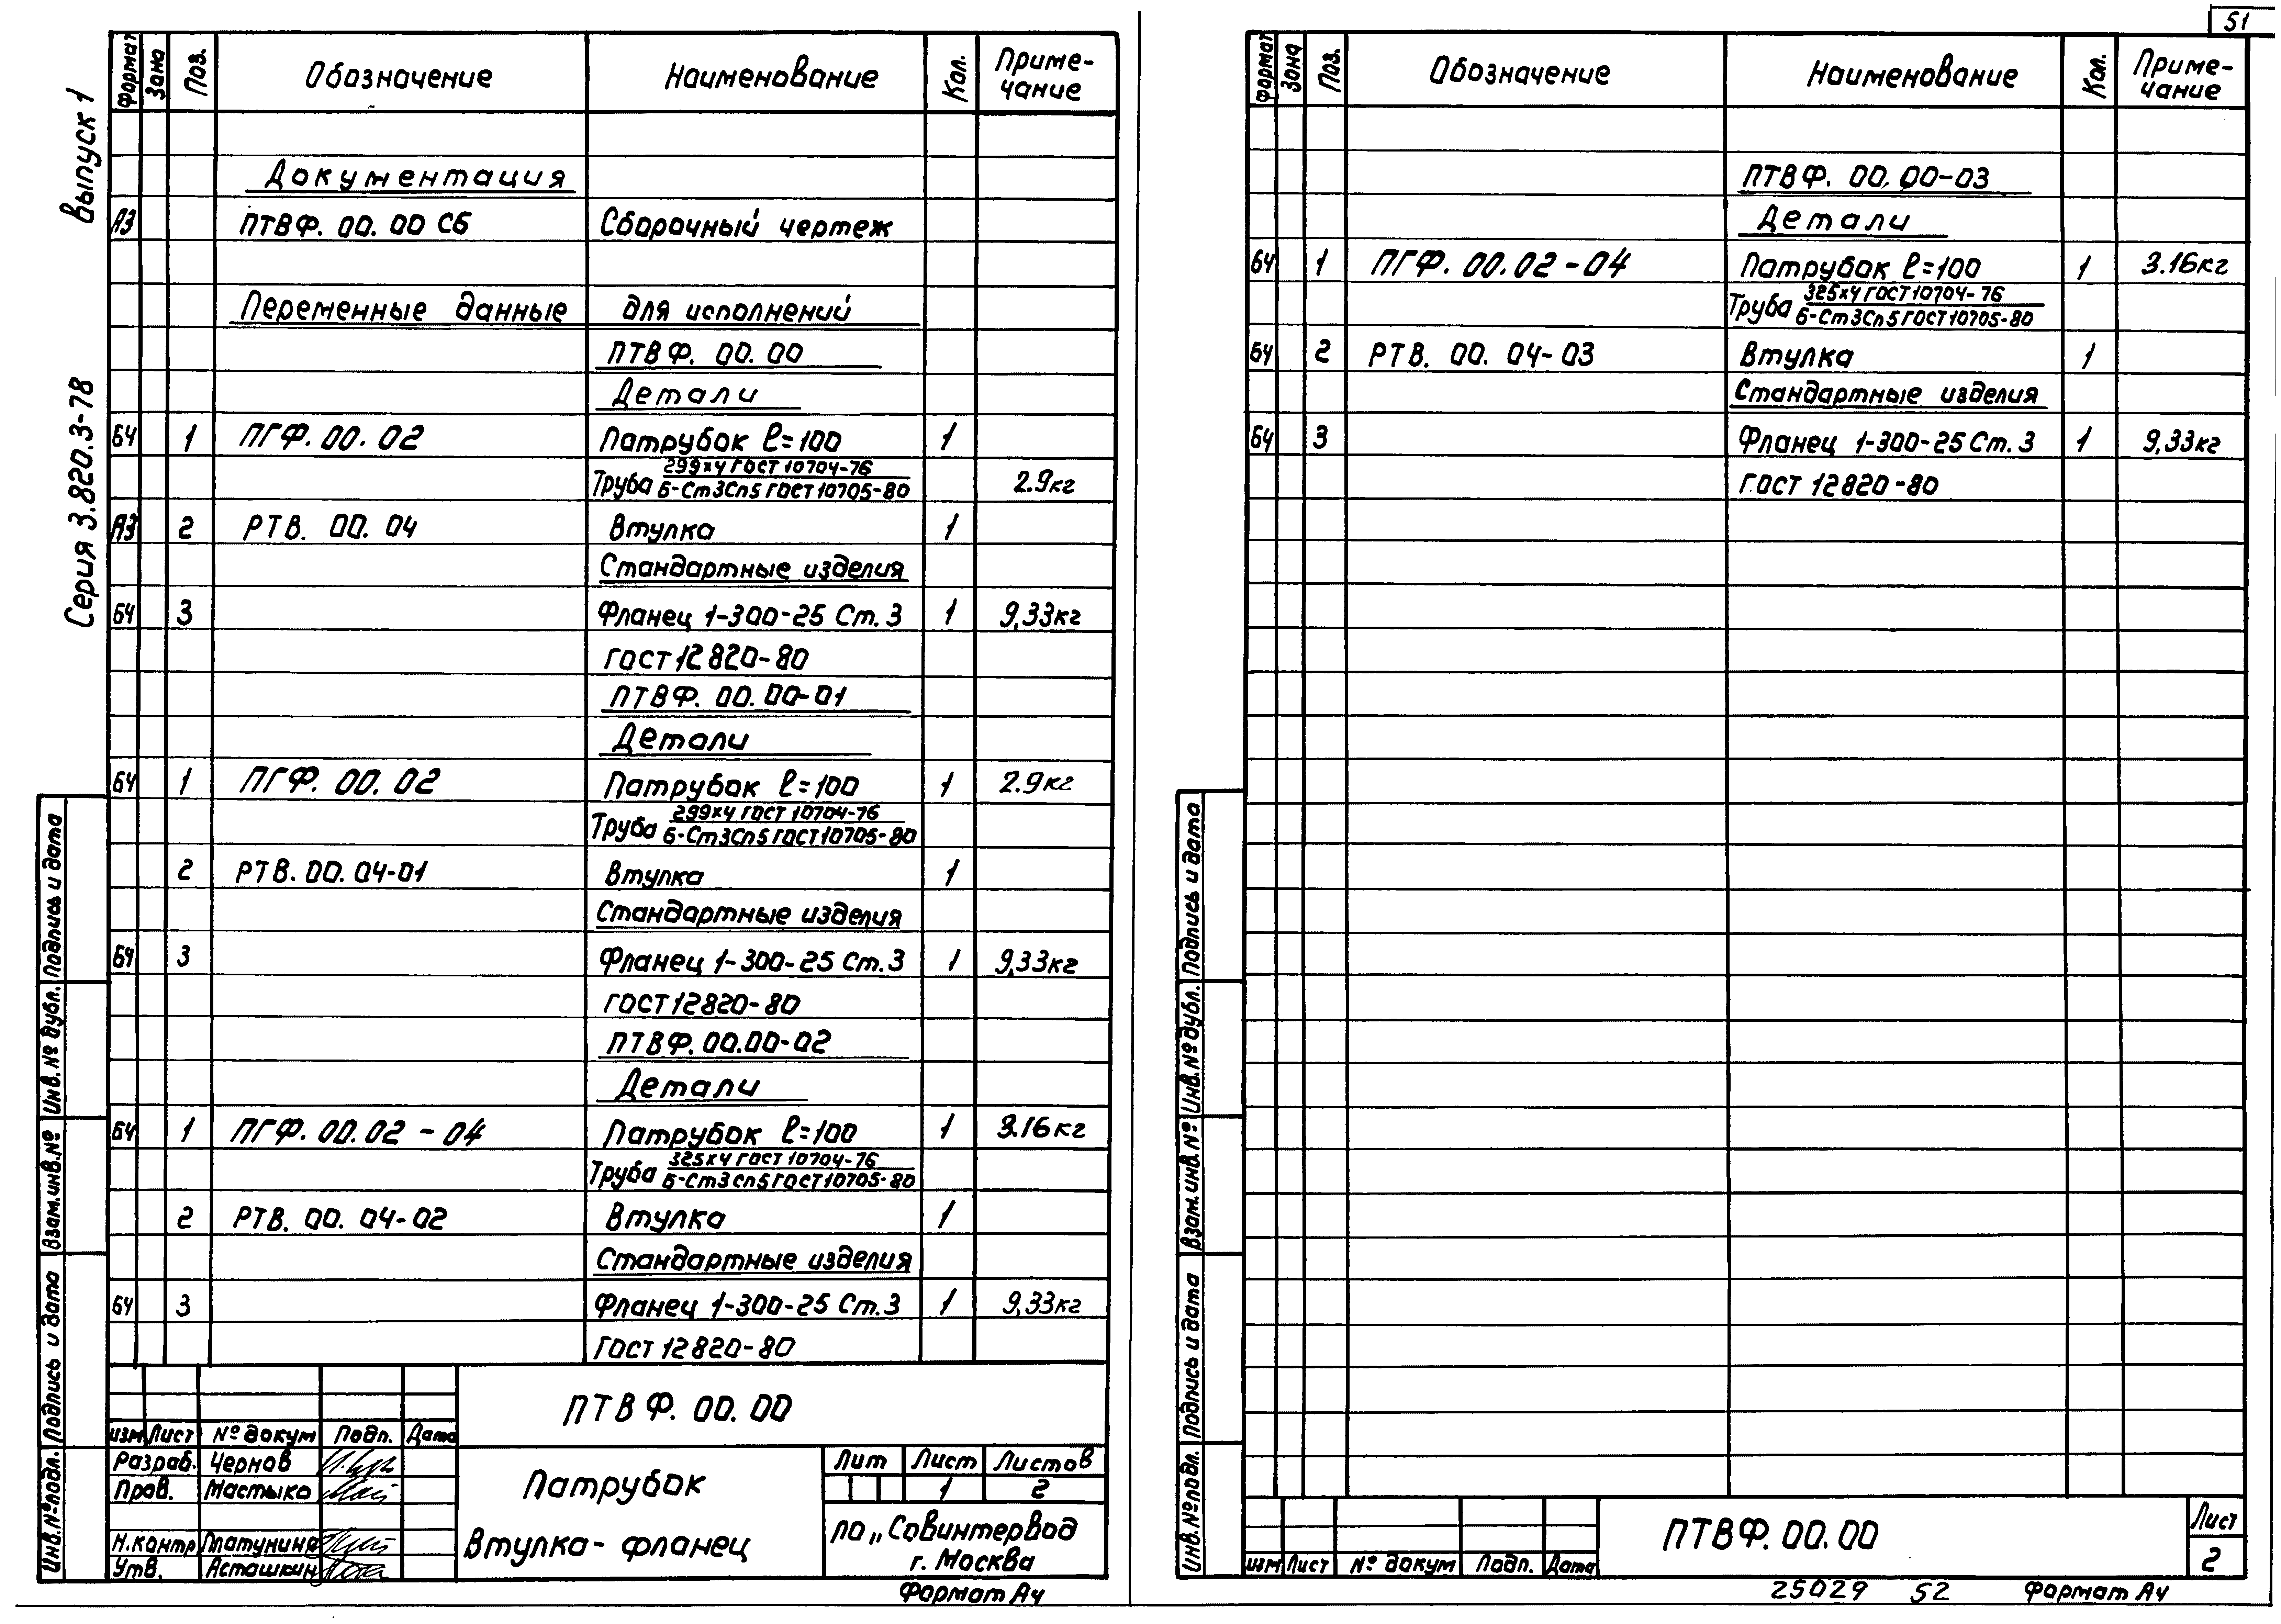 Выпуск 1
Серия 3.820.3-78
Формат Зона Поз. Обозначение Наименование Кол. Приме-
чание
Документация
А3 ПТВФ. 00. 00 СБ Сборочный чертеж
Переменные данные для исполнений
ПТВФ. 00. 00
Детали
БЧ 1 ПГФ. 00. 02 Патрубок ℓ=100 1
Труба 299×4 ГОСТ 10704-76
Б-Ст3Сп5 ГОСТ 10705-80 2.9кг
А3 2 РТВ. 00. 04 Втулка 1
Стандартные изделия
БЧ 3 Фланец 1-300-25 Ст. 3 1 9,33кг
ГОСТ 12820-80
ПТВФ. 00. 00-01
Детали
БЧ 1 ПГФ. 00. 02 Патрубок ℓ=100 1 2.9кг
Труба 299×4 ГОСТ 10704-76
Б-Ст3Сп5 ГОСТ 10705-80
2 РТВ. 00. 04-01 Втулка 1
Стандартные изделия
БЧ 3 Фланец 1-300-25 Ст. 3 1 9,33кг
ГОСТ 12820-80
ПТВФ. 00.00-02
Детали
БЧ 1 ПГФ. 00.02 - 04 Патрубок ℓ=100 1 3.16кг
Труба 325×4 ГОСТ 10704-76
Б-Ст3сп5 ГОСТ 10705-80
2 РТВ. 00. 04-02 Втулка 1
Стандартные изделия
БЧ 3 Фланец 1-300-25 Ст. 3 1 9,33кг
ГОСТ 12820-80
Подпись и дата
Инв. № дубл.
Взам. инв. №
Подпись и дата
Инв. № подл.
ПТВФ. 00. 00
изм Лист № докум Подп. Дата
Разраб. Чернов
Пров. Мастыко
Н.контр Платунина
Утв. Асташкин
Патрубок
Втулка - фланец
Лит Лист Листов
1 2
ПО „Совинтервод
г. Москва
Формат А4
51
Формат Зона Поз. Обозначение Наименование Кол. Приме-
чание
ПТВФ. 00. 00-03
Детали
БЧ 1 ПГФ. 00.02 - 04 Патрубок ℓ=100 1 3.16кг
Труба 325×4 ГОСТ 10704-76
Б-Ст3Сп5 ГОСТ 10705-80
БЧ 2 РТВ. 00. 04-03 Втулка 1
Стандартные изделия
БЧ 3 Фланец 1-300-25 Ст. 3 1 9,33кг
ГОСТ 12820-80
Подпись и дата
Инв. № дубл.
Взам. инв. №
Подпись и дата
Инв. № подл.
изм Лист № докум Подп. Дата
ПТВФ. 00. 00
Лист
2
25029 52 Формат А4